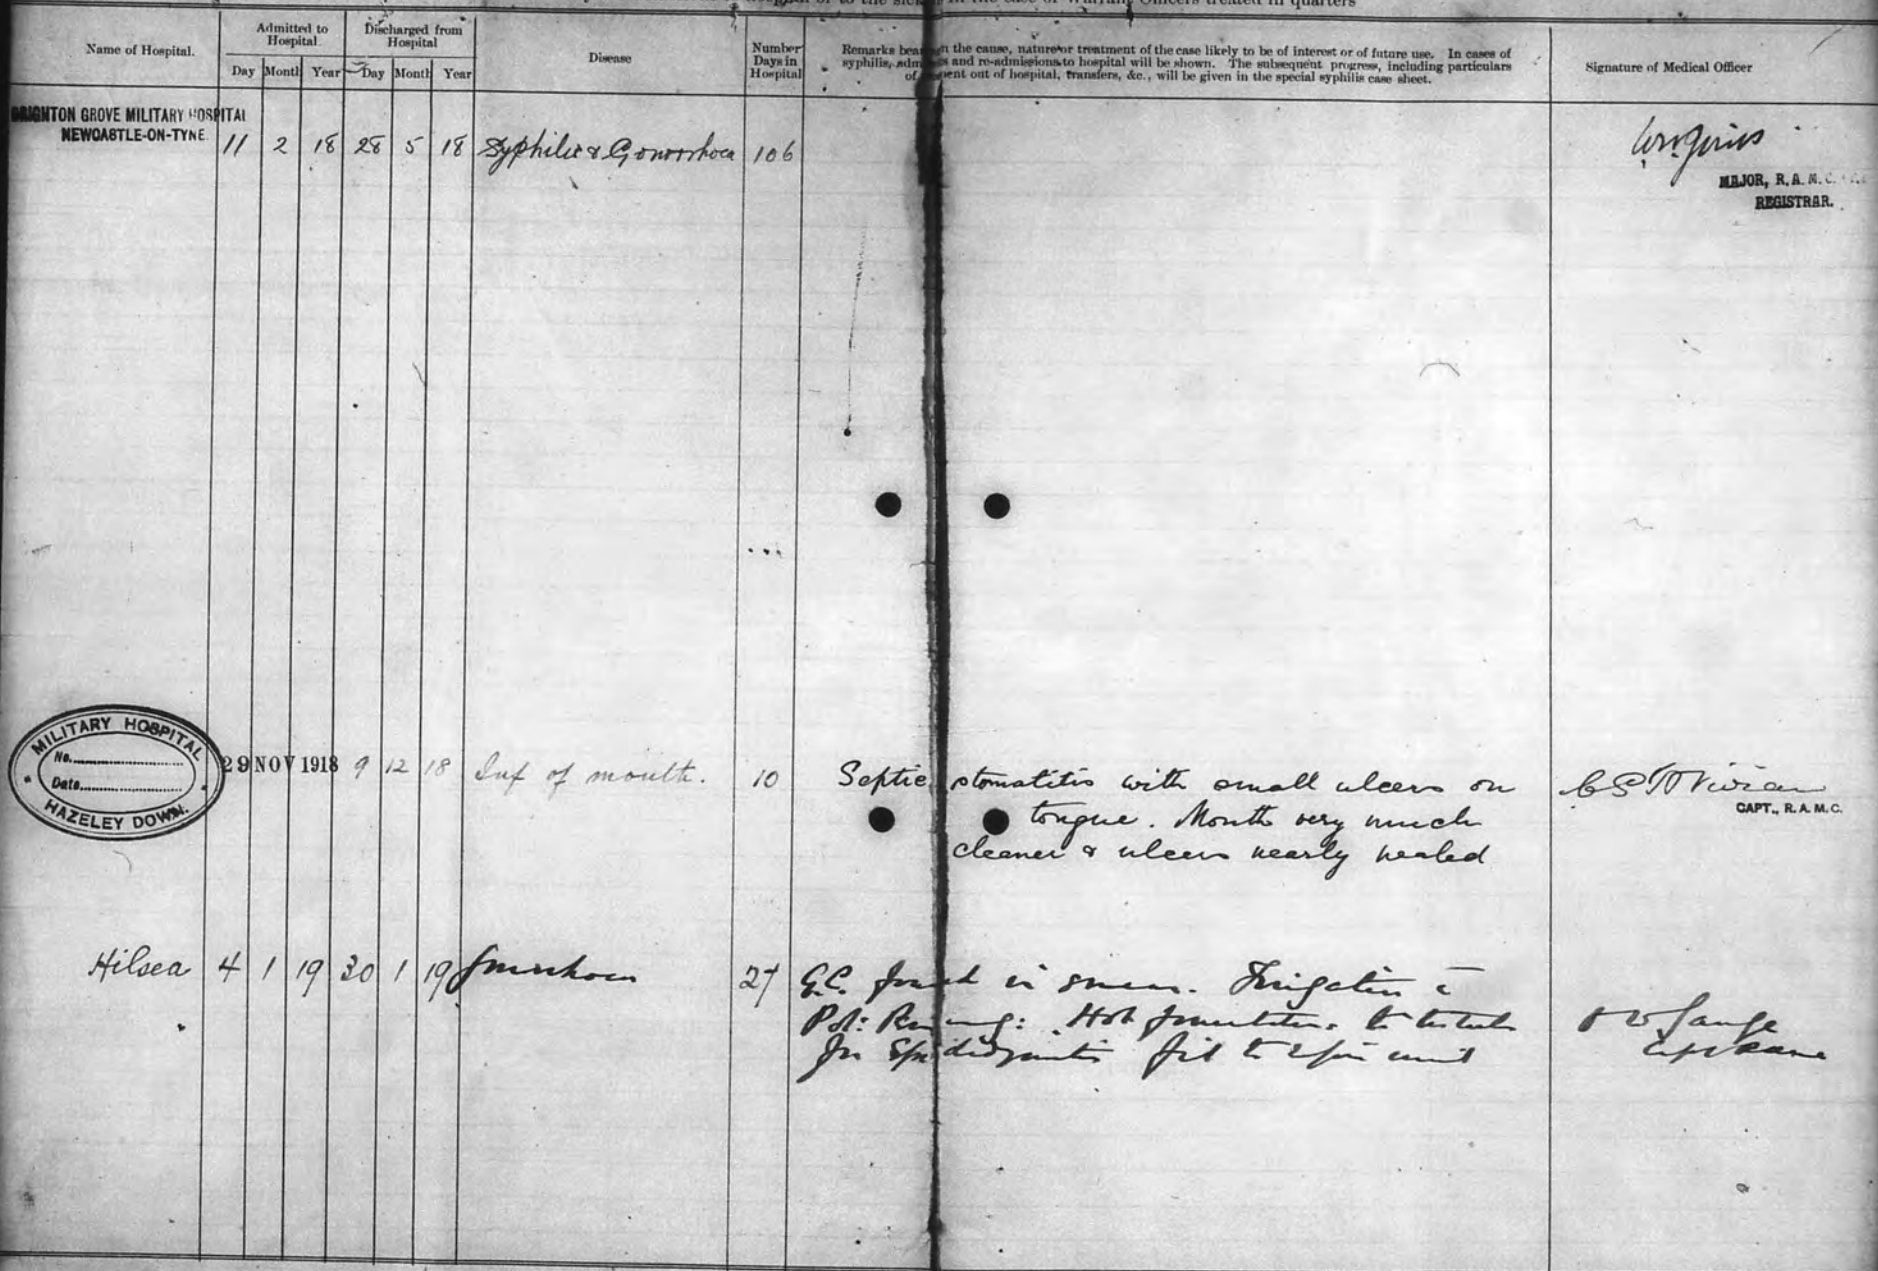 Hospital or to the sick in the case of Warrant Officers treated in quarters
Name of Hospital.
Admitted to Hospital
Day Month Year
Discharged from Hospital
Day Month Year
Disease
Number Days in Hospital
Remarks bear n the cause, nature or treatment of the case likely to be of interest or of future use. In cases of
syphilis, adm s and re-admissions to hospital will be shown. The subsequent progress, including particulars
of ment out of hospital, transfers, &c., will be given in the special syphilis case sheet.
Signature of Medical Officer
BRIGHTON GROVE MILITARY HOSPITAL
NEWCASTLE-ON-TYNE
11 2 18 28 5 18 Syphilis & Gonorrhoea 106
MAJOR, R.A.M.C.
REGISTRAR.
MILITARY HOSPITAL
No.
Date
HAZELEY DOWN.
29 NOV 1918 9 12 18 Inf of mouth. 10 Septic stomatitis with small ulcers on
tongue. Mouth very much
cleaner & ulcers nearly healed
Vivian
CAPT., R.A.M.C.
Hilsea 4 1 19 30 1 19 Gonorrhoea 27 G.C. found in smear. Irrigation c̄
Pot: Permang: Hot fomentations to testicle
for Epididymitis fit to rejoin unit
Capt RAMC